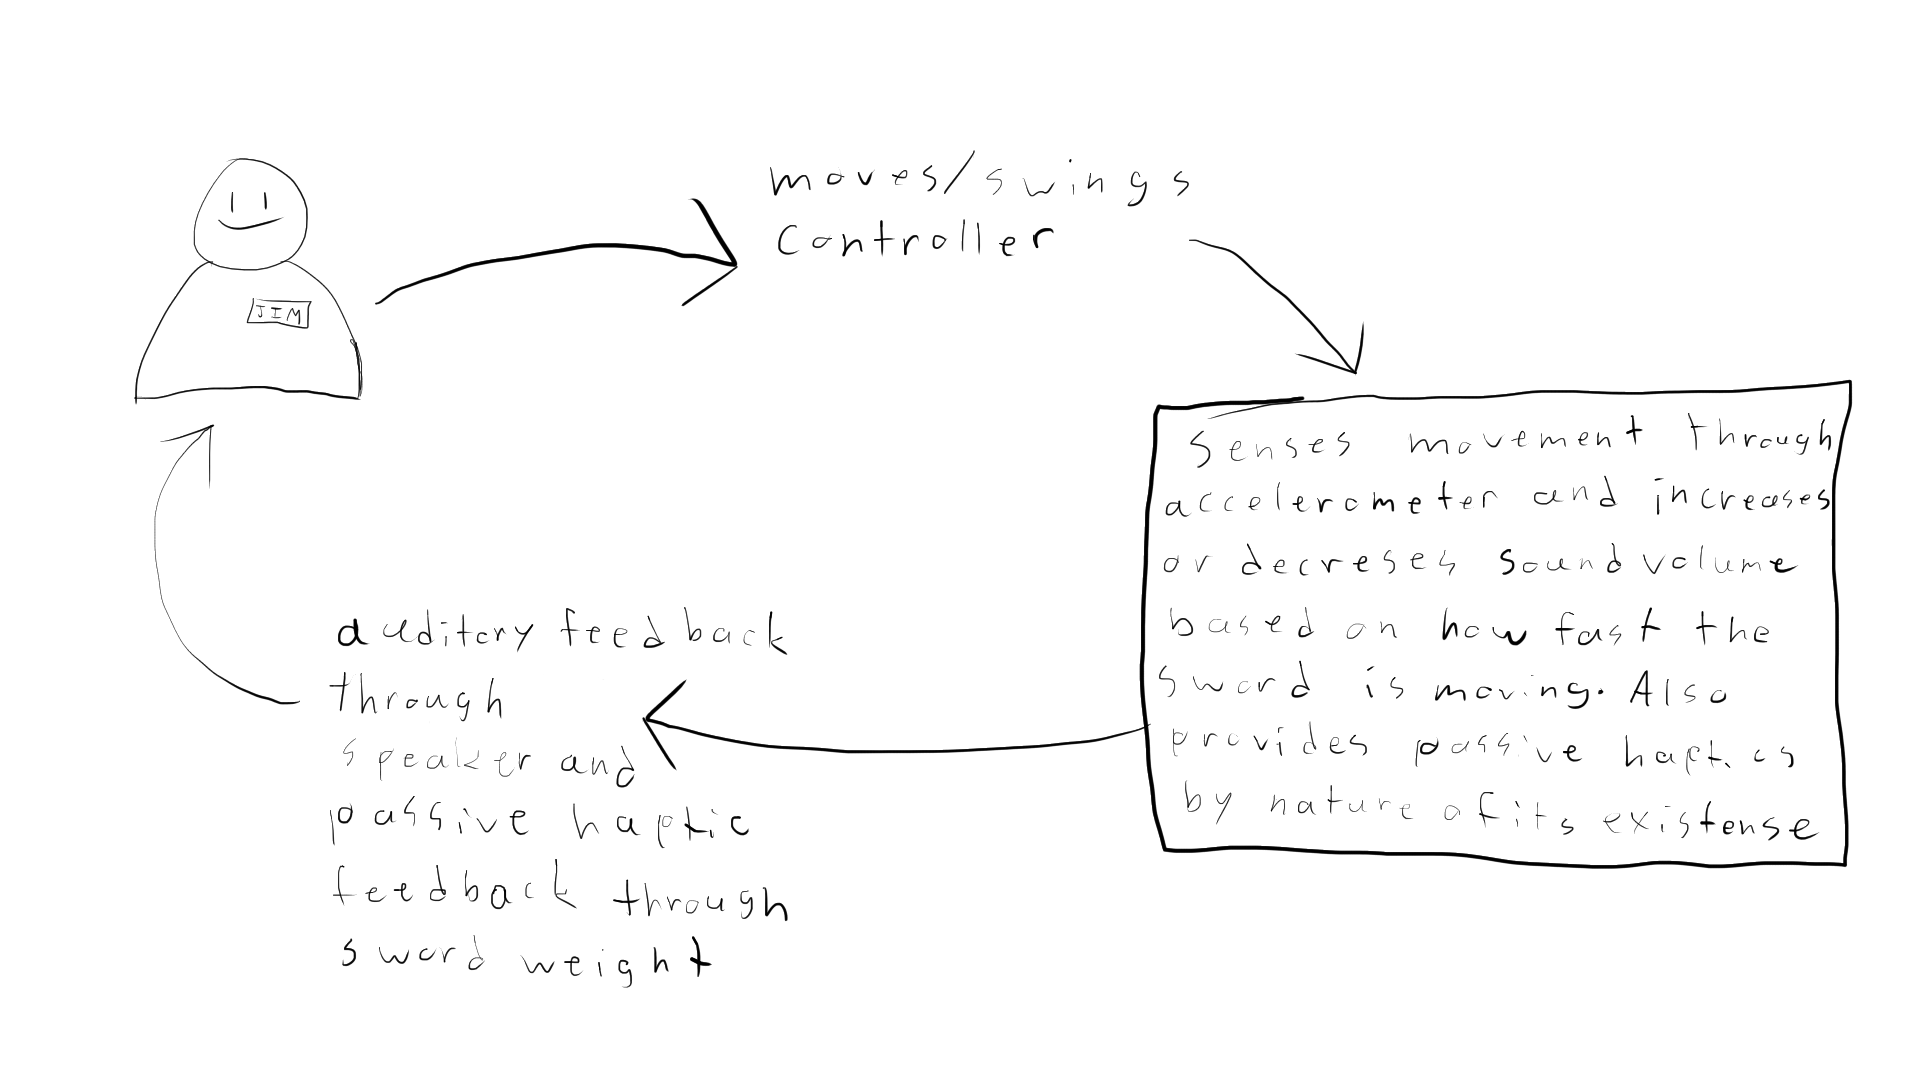 moves/swings
controller
JIM
Senses movement through
accelerometer and increases
or decreses sound volume
based on how fast the
sword is moving. Also
provides passive haptics
by nature of its existense
auditory feedback
through
speaker and
passive haptic
feedback through
sword weight